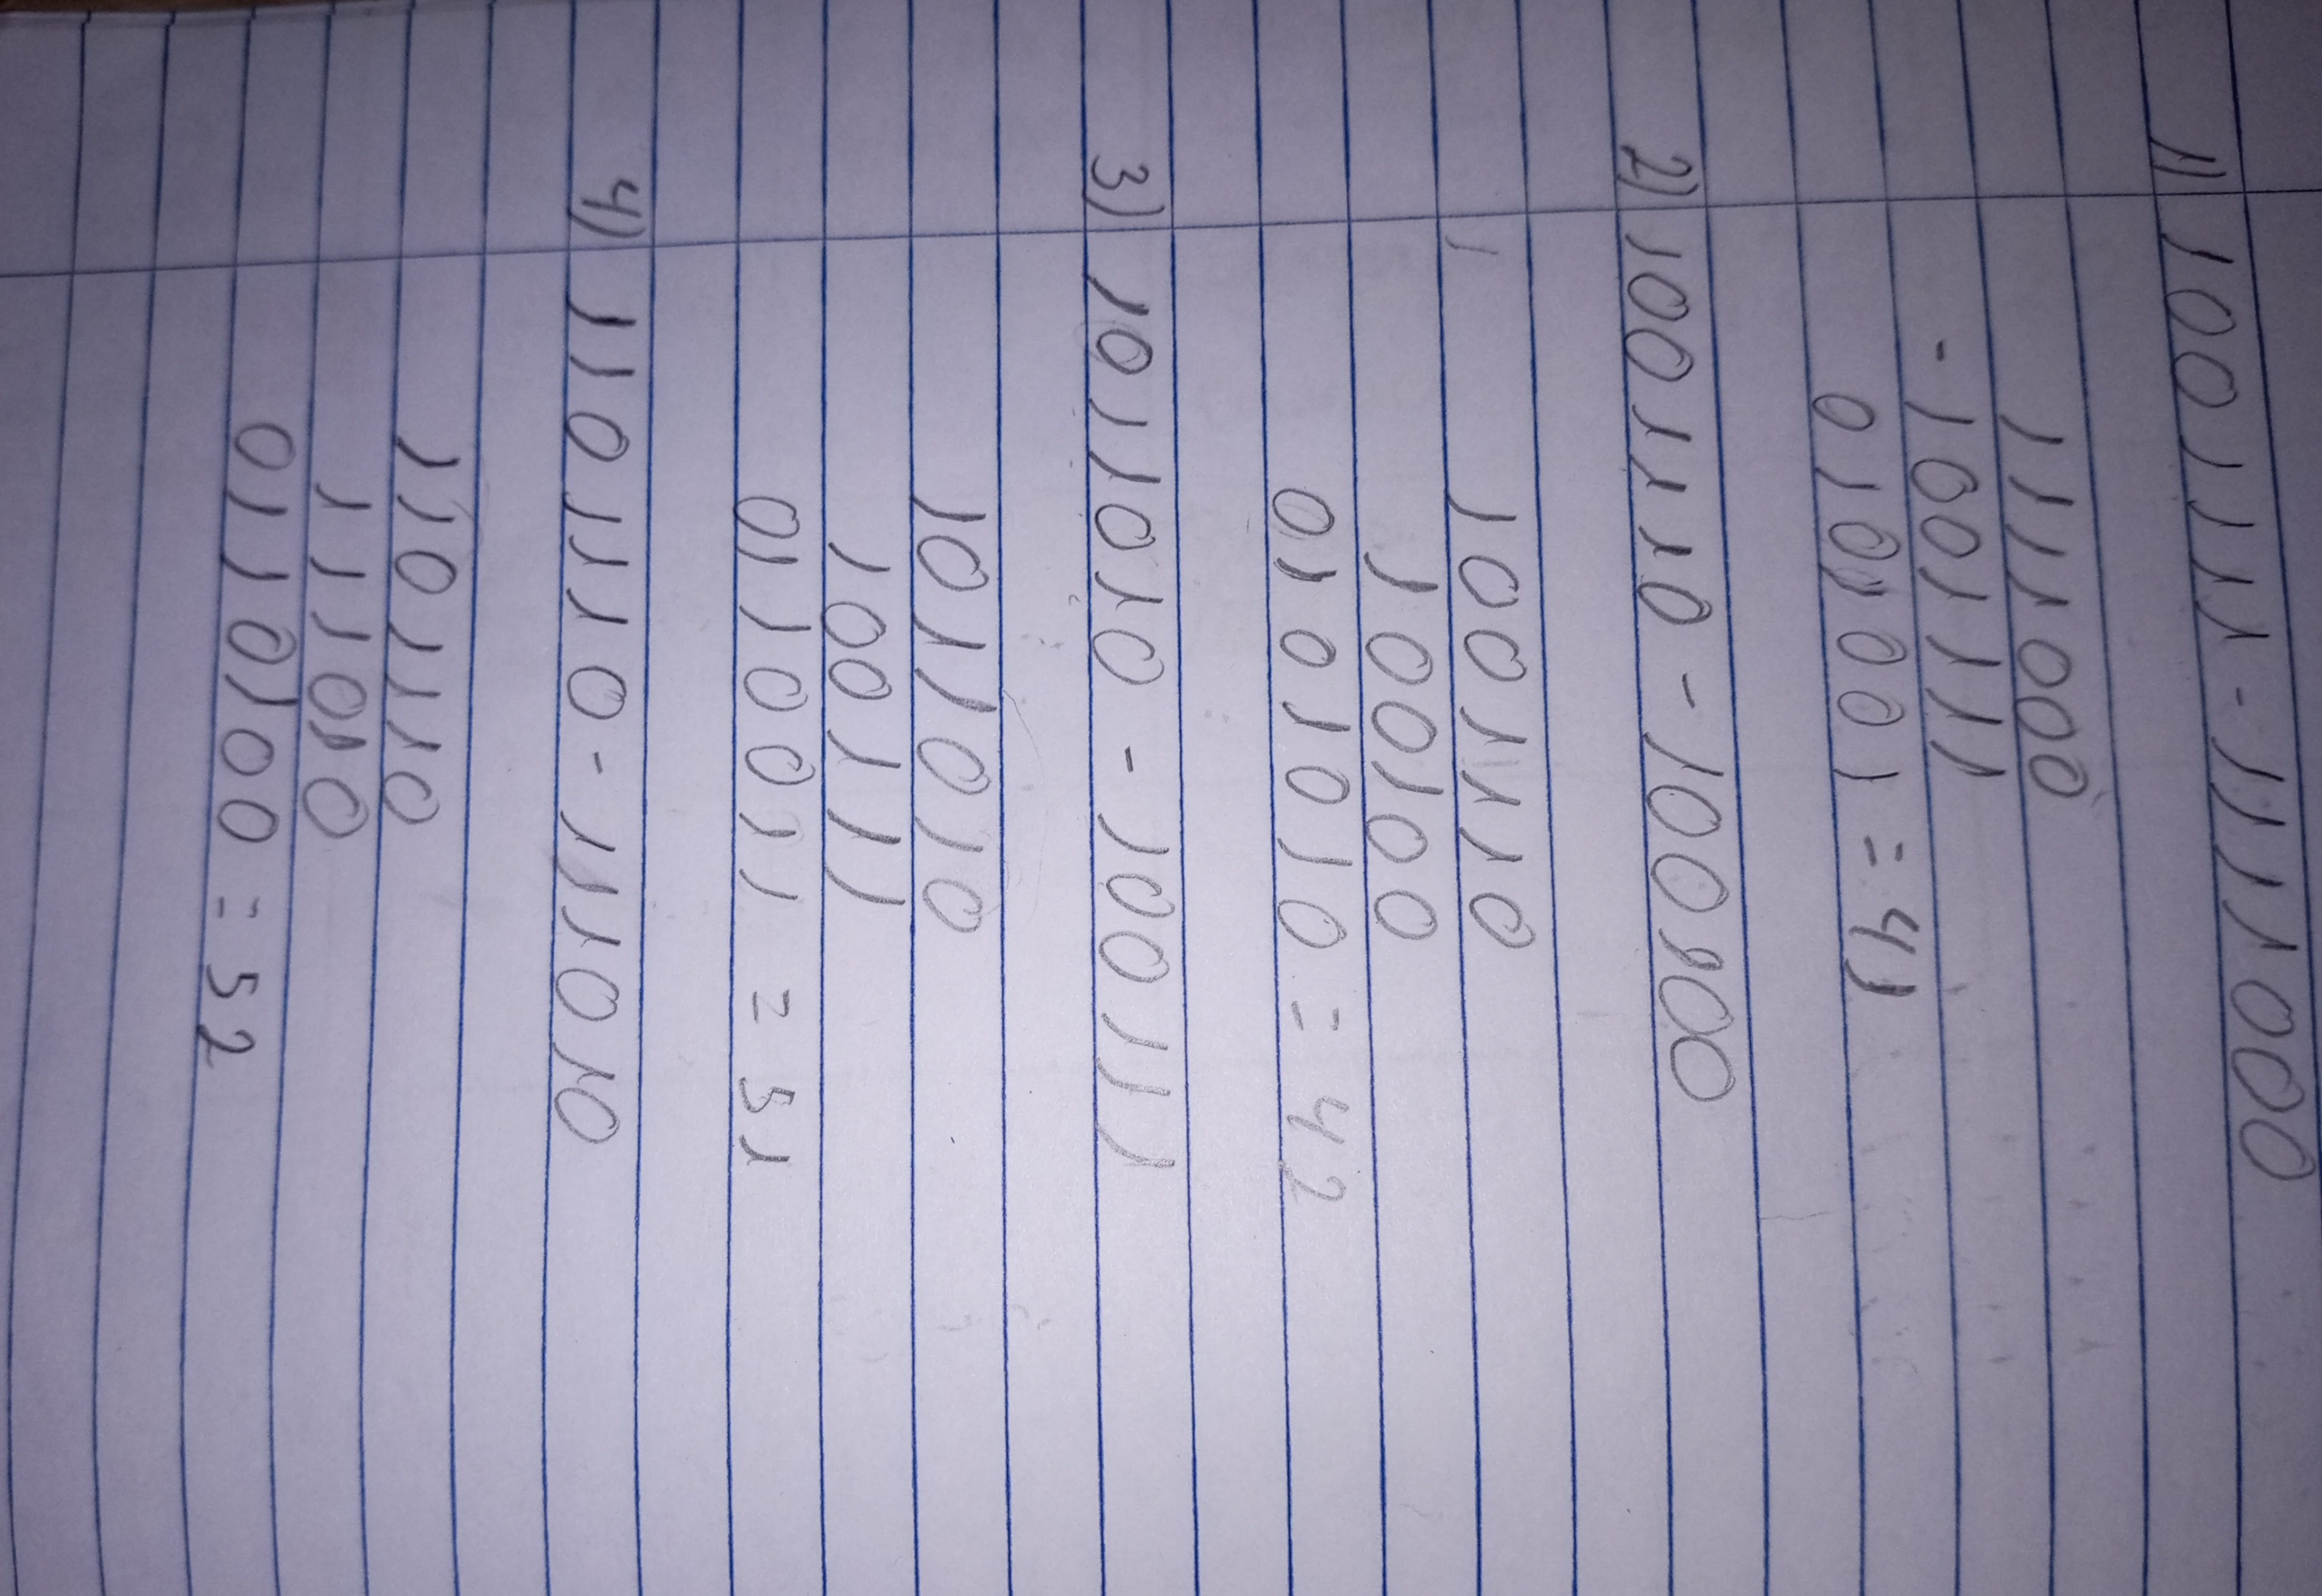 1) 1001111 - 1111000
1111000
- 1001111
0101001 = 41
2) 1001110 - 100100
1 1001110
100100
0101010 = 42
3) 1011010 - 100111
1011010
100111
0110011 = 51
4) 1101110 - 111010
1101110
111010
0110100 = 52